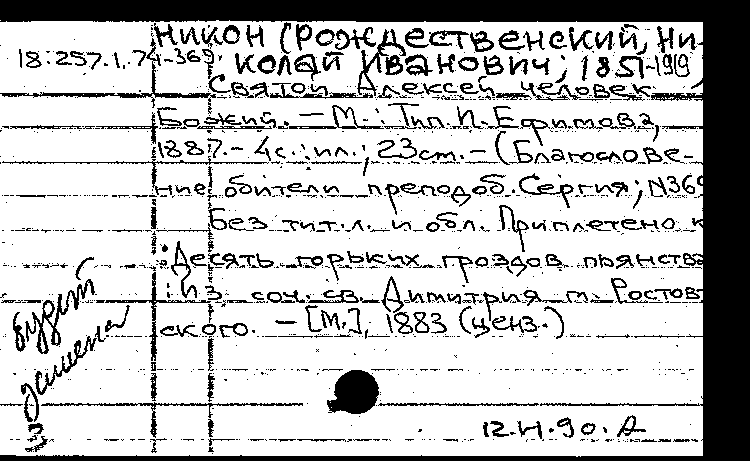 НИКОН (РОЖДЕСТВЕНСКИЙ, НИ-
18:257.1.74-369. КОЛАЙ ИВАНОВИЧ; 1851-1919
Святой Алексей человек
Божий. – М.: Тип. И. Ефимова,
1887. – 4с.: ил.; 23см. – (Благослове-
ние обители преподоб. Сергия; N369
Без тит.л. и обл. Приплетено к
: Десять горьких гроздов пьянства
: Из соч. св. Димитрия м. Ростов
ского. – [М.], 1883 (ценз.)
будет
замена
12.VI.90.